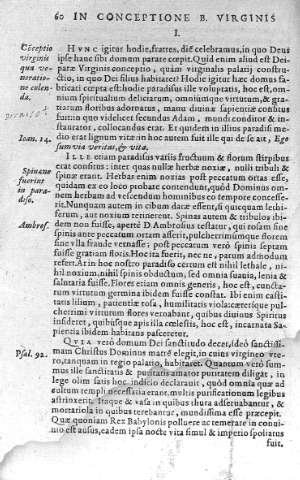 60 IN CONCEPTIONE B. VIRGINIS
I.
Cõceptio virginis qua veneratione colenda.
HVNC igitur hodie, fratres, diẽ celebramus, in quo Deus
ipse hanc sibi domum parare cœpit. Quid enim aliud est Dei-
paræ Virginis conceptio, quàm virginalis palatij constru-
ctio, in quo Dei filius habitaret? Hodie igitur hæc domus fa-
bricari cœpta est: hodie paradisus ille voluptatis, hoc est, om-
nium spiritualium deliciarum, omniumque virtutum, &
floribus adornatus, manu diuinæ sapientiæ conditus
fuit: in quo videlicet secundus Adam, mundi conditor & in-
staurator, collocandus erat. Et quidem in illius paradisi me-
dio erat lignum vitæ: in hoc autem fuit ille qui de se ait, Ego
sum via & veritas, & vita.
Ioan. 14.
Spinæ an fuerint in paradiso.
ILLE etiam paradisus varijs fructuum & florum stirpibus
erat consitus: inter quas nullæ herbæ noxiæ, nulli tribuli &
spinæ erant. Herbas enim noxias post peccatum ortas esse,
quidam ex eo loco probare contendunt, quòd Dominus om-
nem herbam ad vescendum hominibus eo tempore concesse-
rit. Nunquam autem in cibum dacæ essent, si quicquam lethi-
ferum, aut noxium retinerent. Spinas autem & tribulos ibi-
dem non fuisse, aperte D. Ambrosius testatur, qui rosam sine
spinis ante peccatum ortam asserit, pulcherrimumque florem
sine vlla fraude vernasse; post peccatum verò spinis septam
fuisse gratiam floris.
Ambros.
At in hoc nostro paradiso certum est nihil lethale, ni-
hil noxium, nihil spinis obductum, sed omnia suauia, læta &
salutaria fuisse. Flores etiam omnis generis, hoc est, cuncta-
rum virtutum germina ibidem fuisse constat. Ibi enim casti-
tatis lilium, patientiæ rosa, humilitatis viola cæterique pul-
cherrimi virtutum flores vernabant, quibus diuinus Spiritus
insideret, quibusque apis illa cælestis, hoc est, incarnata Sa-
pientia ibidem habitans pasceretur.
Psal. 92.
QVIA verò domum Dei sanctitudo decet, ideò sanctissi-
mam Christus Dominus matrẽ elegit, in cuius virgineo vte-
ro, tanquam in regio palatio, habitaret. Quantum verò sum-
mus ille sanctitatis & puritatis amator puritatem diligat, in
lege olim satis hoc indicio declarauit, quòd omnia quæ ad
cultum templi necessaria erant, multis purificationum legibus
astrinxerit. Itaque & vasa in quibus thura adurebantur, &
mortariola in quibus terebantur, mundissima esse præcepit.
Quæ quoniam Rex Babylonis polluere ac temerare in conui-
uio est ausus, eadem ipsa nocte vita simul & imperio spoliatus
fuit.